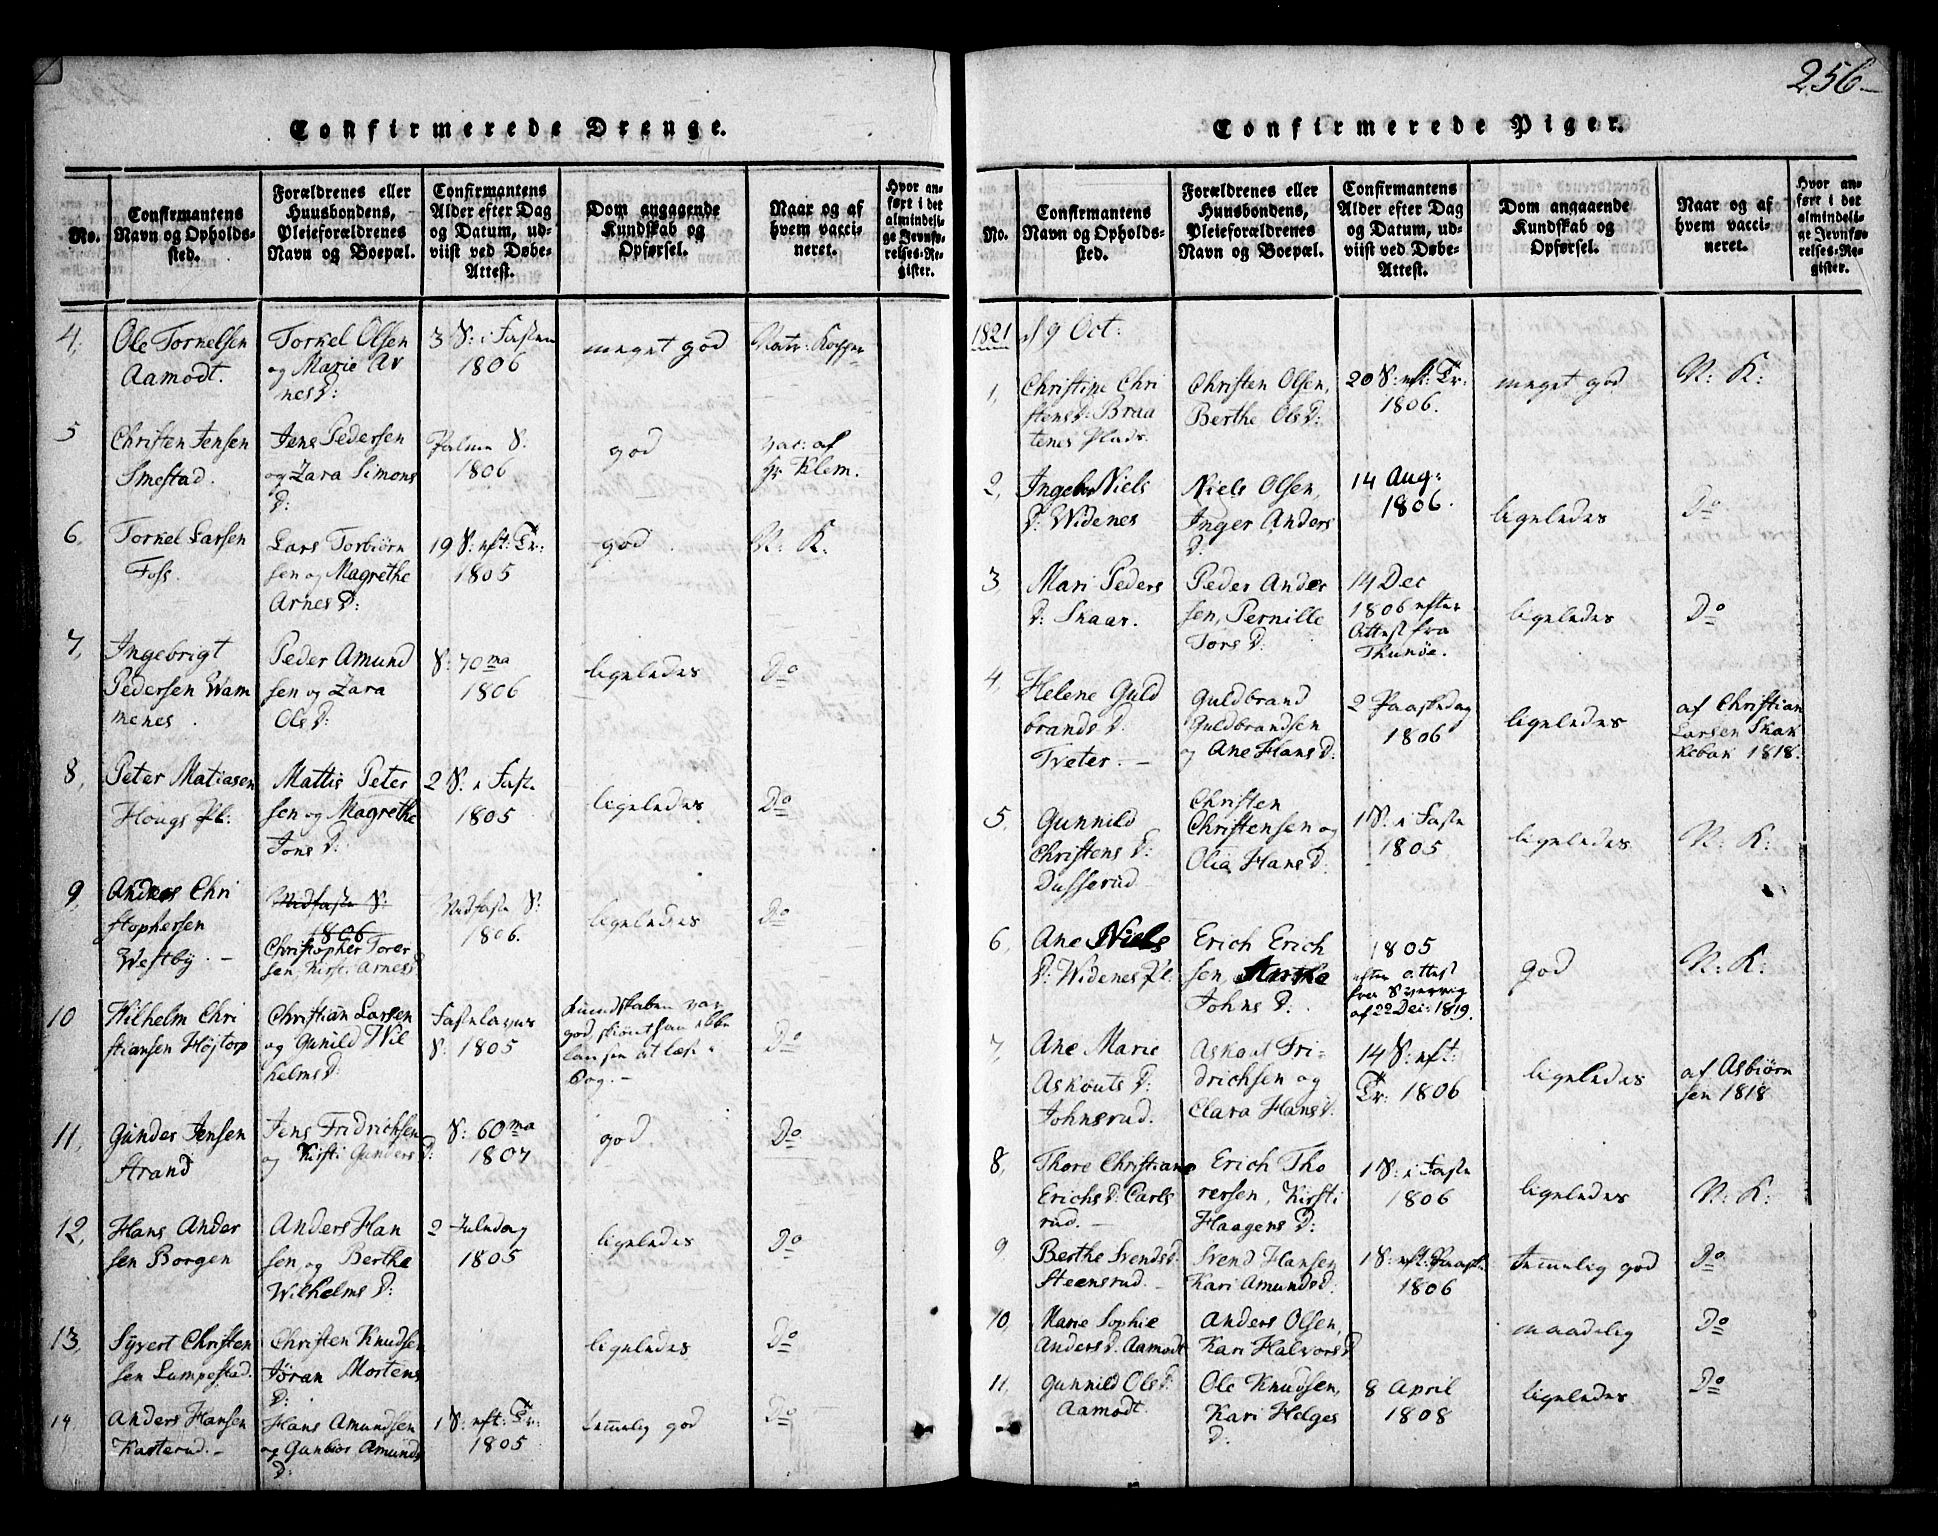 256
Confirmerede Drenge.
No.
Confirmantens
Navn og Opholds-
sted.
Forældrenes eller
Huusbondens,
Pleieforældrenes
Navn og Boepæl.
Confirmantens
Alder efter Dag
og Datum, ud-
viist ved Døbe-
Attest.
Dom angaaende
Kundskab og
Opførsel.
Naar og af
hvem vacci-
neret.
Hvor an-
ført i det
almindeli-
ge Jevnfø-
relses-Re-
gister.
4,
Ole Tornelsen
Aamodt.
Tornel Olsen
og Marie Ar
nes D:
3 S: i Fasten
1806
meget god
Natr: Kopper
5
Christen Jensen
Smestad.
Jens Pedersen
og Zara Simons
D:
Palme S.
1806
god
vac: af
Hr Klem.
6,
Tornel Larsen
Foss.
Lars Torbiørn
sen og Magrethe
Arnes D:
19 S: eft: Tr:
1805
god
N: K:
7,
Ingebrigt
Pedersen Wam
menes.
Peder Amund
sen og Zara
Ols D:
S: 70ma
1806
ligeledes
Do
8,
Peter Matiasen
Hougs Pl:
Mattis Peter
sen og Magrethe
Jons D:
2 S: i Faste
1805
ligeledes
Do
9,
Anders Chri
stophersen
Westby. –
Midfaste S:
1806
Christopher Torer
sen, Kirst: Arnes D
Midfaste S:
1806.
ligeledes
Do
10
Wilhelm Chri
stiansen Højtorp
Christian Larsen
og Gunild Wil
helms D:
Fastelavns
S: 1805
Kundskaben var
god skiønt han ikke
kan læse i
bog. –
Do
11,
Gunder Jensen
Strand
Jens Fridrichsen
og Kirsti Gunders D:
S: 60ma
1807
god
Do
12,
Hans Ander
sen Borgen
Anders Han
sen og Berthe
Wilhelms D:
2 Juledag
1805
ligeledes
Do
13,
Syvert Christen
sen Lumpestad.
Christen Knudsen
Jøran Mortens
D:
ligeledes
Do
14
Anders Hansen
Kasterud. –
Hans Amundsen
og Gunbior Amunds
D:
1 S: eft: Tr:
1805
temmelig god
Do
Confirmerede Piger.
No.
Confirmantens
Navn og Opholds-
sted.
Forældrenes eller
Huusbondens,
Pleieforældrenes
Navn og Boepæl.
Confirmantens
Alder efter Dag
og Datum, ud-
viist ved Døbe-
Attest.
Dom angaaende
Kundskab og
Opførsel.
Naar og af
hvem vacci-
neret.
Hvor an-
ført i det
almindeli-
ge Jevnfø-
relses-Re-
gister.
1821
9 Oct:
1,
Christine Chri
stens D: Braa
tenes Plads.
Christen Olsen,
Berthe Ols D:
20 S: eft: Tr:
1806.
meget god
N: K:
2,
Ingebr Niels
D: Widenes
Niels Olsen,
Inger Anders
D:
14 Aug:
1806.
ligeledes
Do
3,
Mari Peders
D: Skaar.
Peder Ander
sen, Pernille
Tors D:
14 Dec
1806 efter
Attest fra
Thunøe.
ligeledes
Do
4,
Helene Guld
brands D:
Tveter. –
Guldbrand
Guldbrandsen
og Ane Hans D:
2 Paaskedag
1806
ligeledes
af Christian
Larsen Skak
kebak 1818.
5,
Gunnild
Christens D:
Dusserud –
Christen
Christensen og
Olia Hans D:
1 S: i Faste
1805
ligeledes
N: K:
6,
Ane Niels
D: Widenes Pl.
Erich Erich
sen, Marthe
Johns D:
1805
efter Attest
fra Sverrig
af 22 Dec: 1819.
god
N: K:
7,
Ane Marie
Askouts D:
Johnsrud.
Askout Fri-
drichsen og
Clara Hans D:
14 S: eft:
Tr: 1806
ligeledes
af Asbiørn
sen 1818
8,
Thore Christiane
Erichs D: Carls
rud. –
Erich Tho
rersen, Kirsti
Haagens D:
1 S: i Faste
1806
ligeledes
N: K:
9,
Berthe Svends D:
Steensrud. –
Svend Hansen
Kari Amunds D:
1 S: eft: Paaske
1806
temmelig god
Do
10,
Marie Sophie
Anders D: Aamodt
Anders Olsen,
Kari Halvors D
maadelig
Do
11,
Gunnild Ols D:
Aamodt.
Ole Knudsen,
Kari Helges
D:
8 April
1808
ligeledes
Do